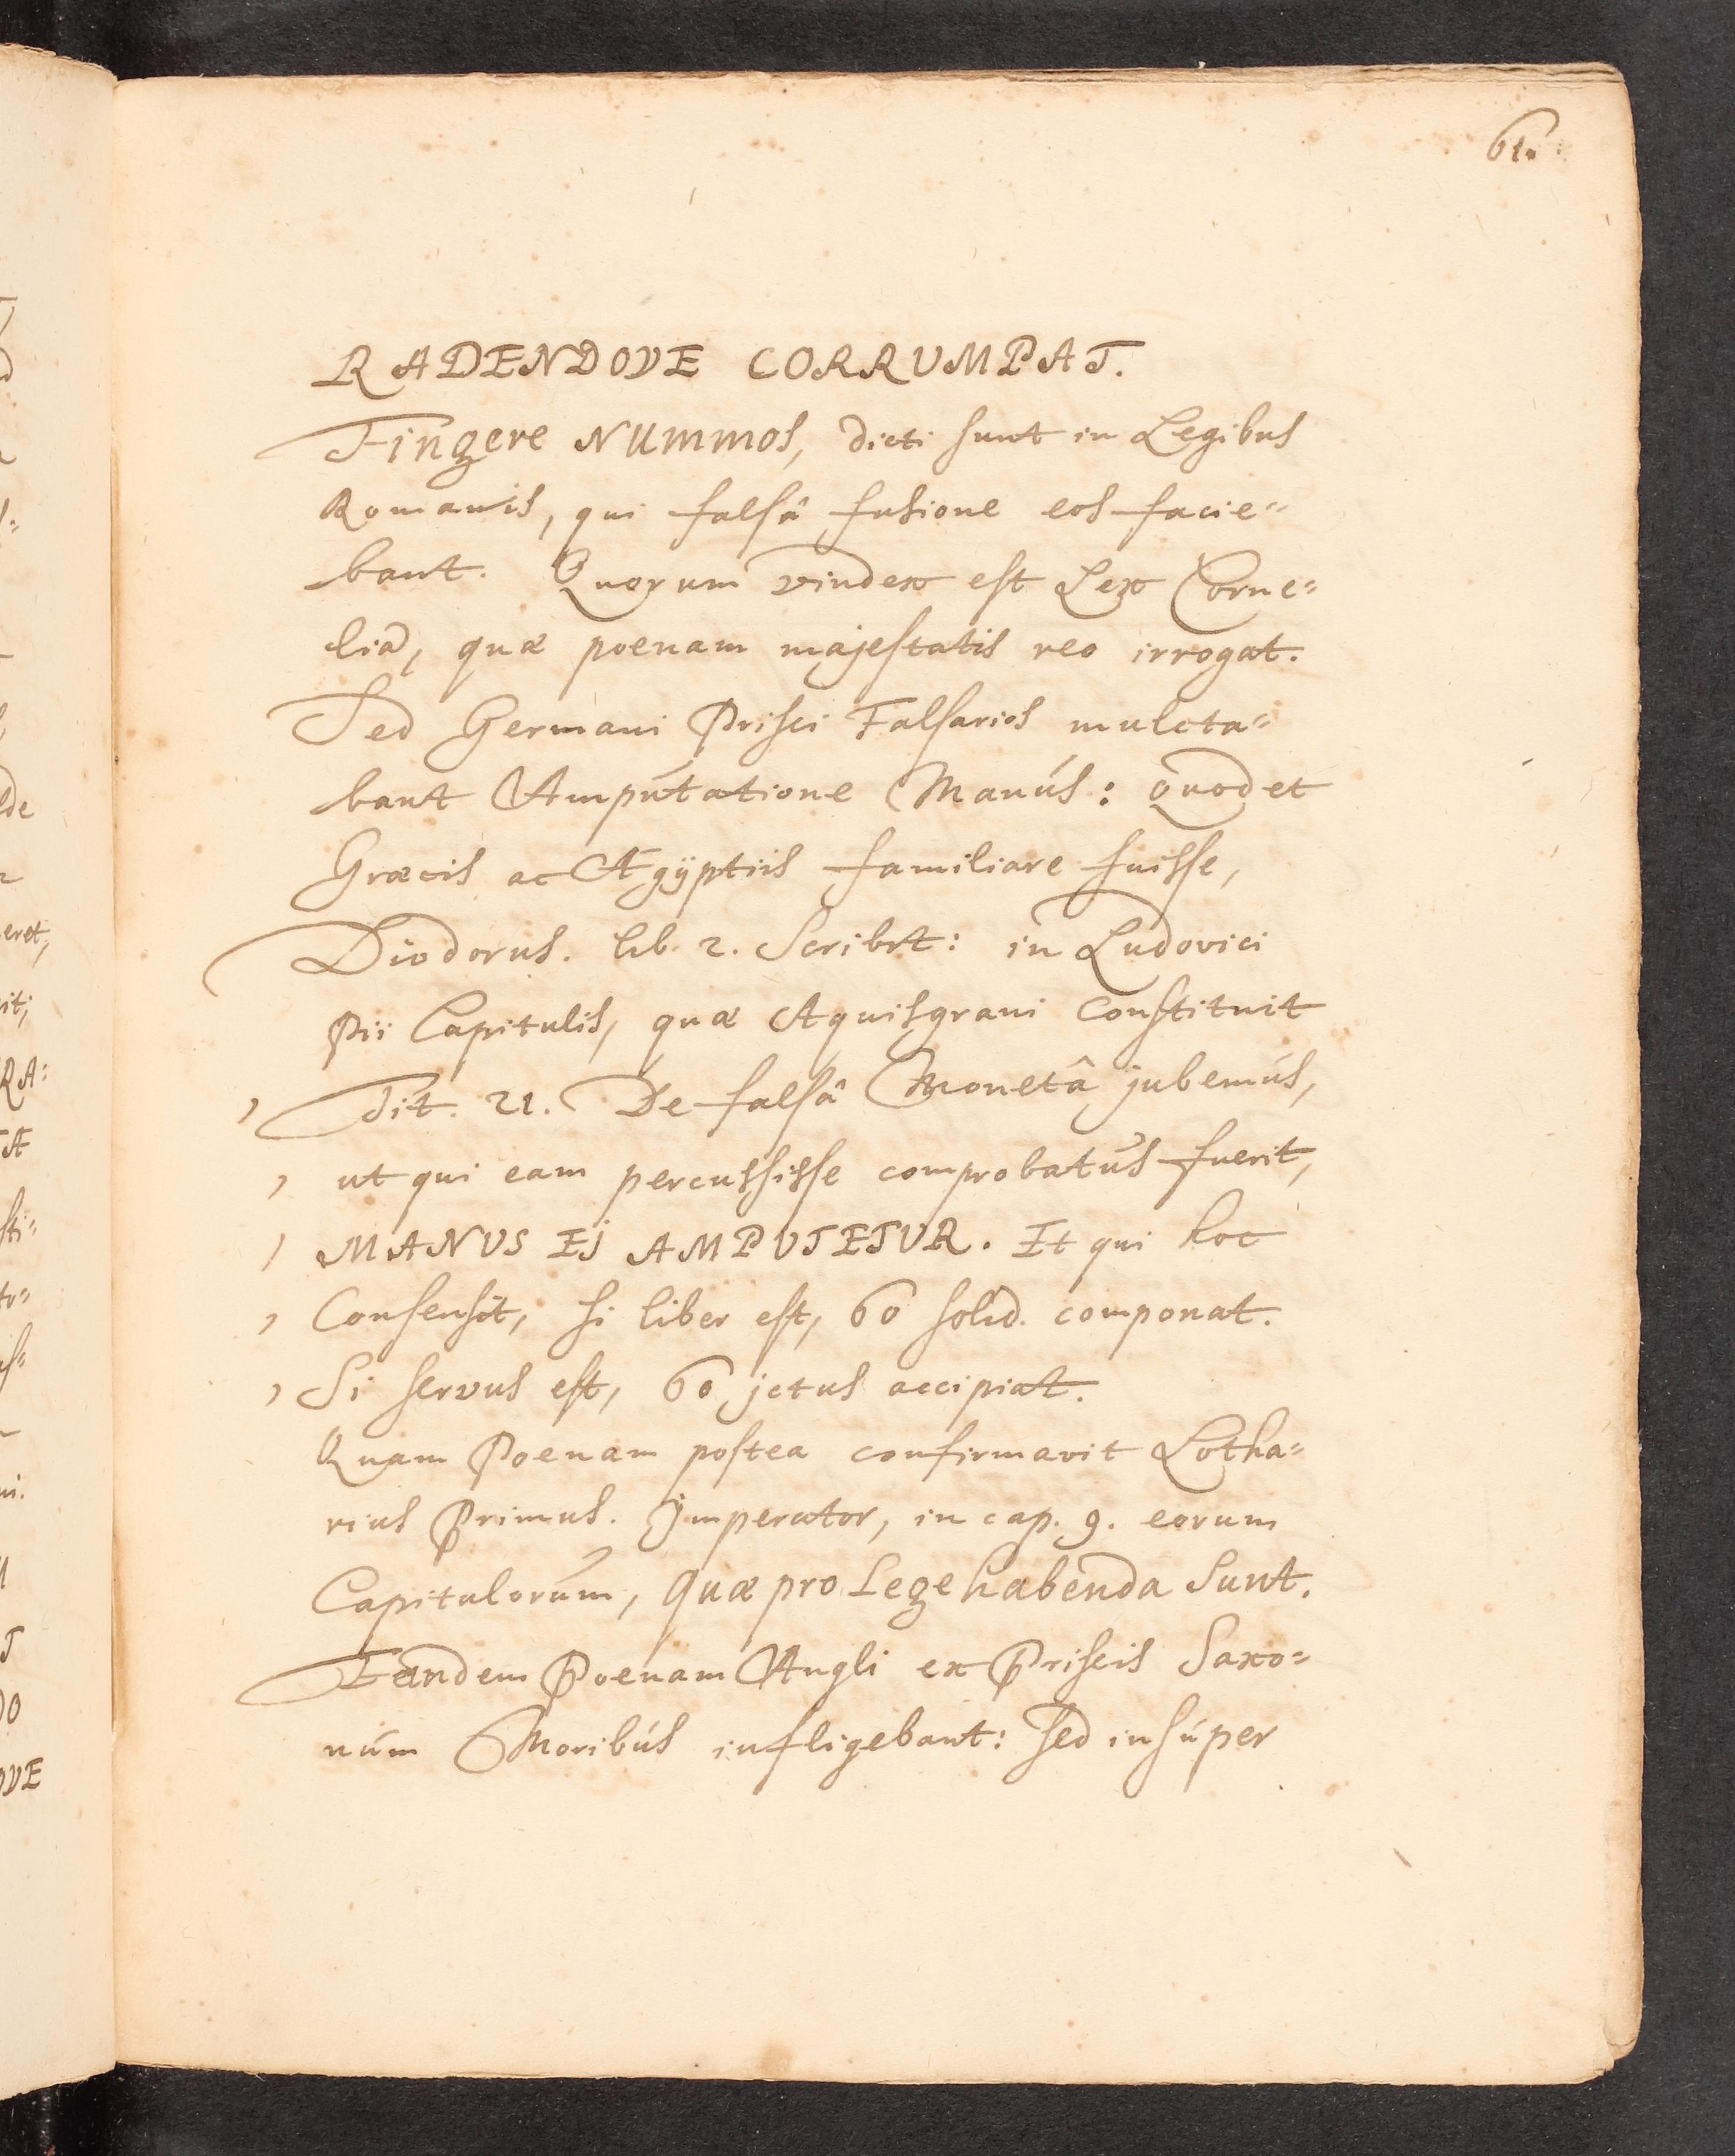 61.
RADENDOVE CORRUMPAT.
Fingere Nummos, dicti sunt in Legibus
Romanis, qui falsâ fusione eos facie=
bant. Quorum vindex est Lex Corne=
lia, quæ poenam majestatis reo irrogat.
Sed Germani Prisci Falsarios mulcta=
bant Amputatione Manús: Quod et
Græcis ac Ægÿptiis familiare fuisse,
Diodorus. lib. 2. Scribit: in Ludovici
Pii Capitulis, quæ Aquisgrani Constituit
, Tit. 21. De falsâ Monetâ jubemús,
, ut qui eam percussisse comprobatus fuerit,
, MANUS EJ AMPUTETUR. Et qui hoc
, Consensit, si liber est, 60 solid. componat.
, Si servus est, 60 jctus accipiat.
Quam Poenam postea confirmavit Lotha=
rius Primus. Jmperator, in cap. 9. eorum
Capitulorum, Quæ pro Lege habenda Sunt.
Eandem Poenam Angli ex Priscis Saxo=
núm Moribús infligebant: sed insúper